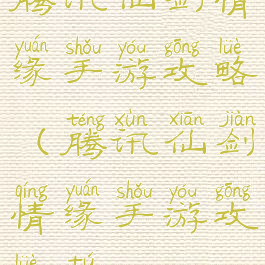 腾讯仙剑情
yuán shǒu yóu gōng lüè
缘手游攻略
téng xùn xiān jiàn
(腾讯仙剑
qíng yuán shǒu yóu gōng
情缘手游攻
lüè tú